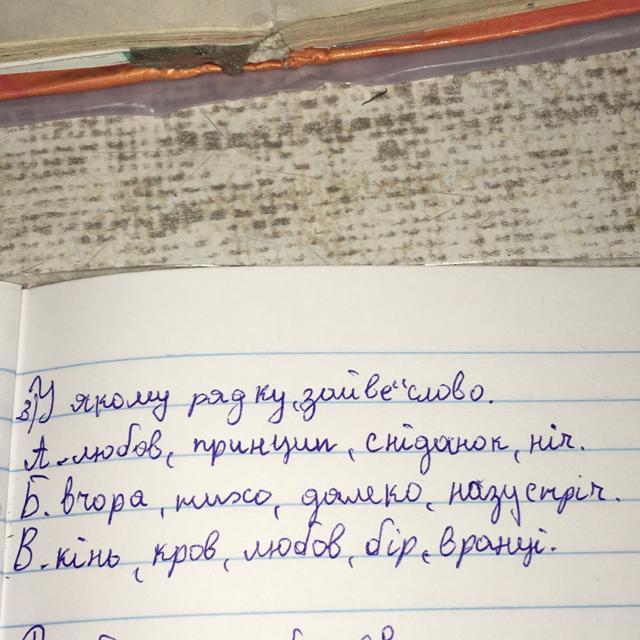 3) У якому рядку „зайве“ слово.
А. любов, принцип, сніданок, ніч.
Б. вчора, тихо, далеко, назустріч.
В. кінь, кров, любов, бір, вранці.